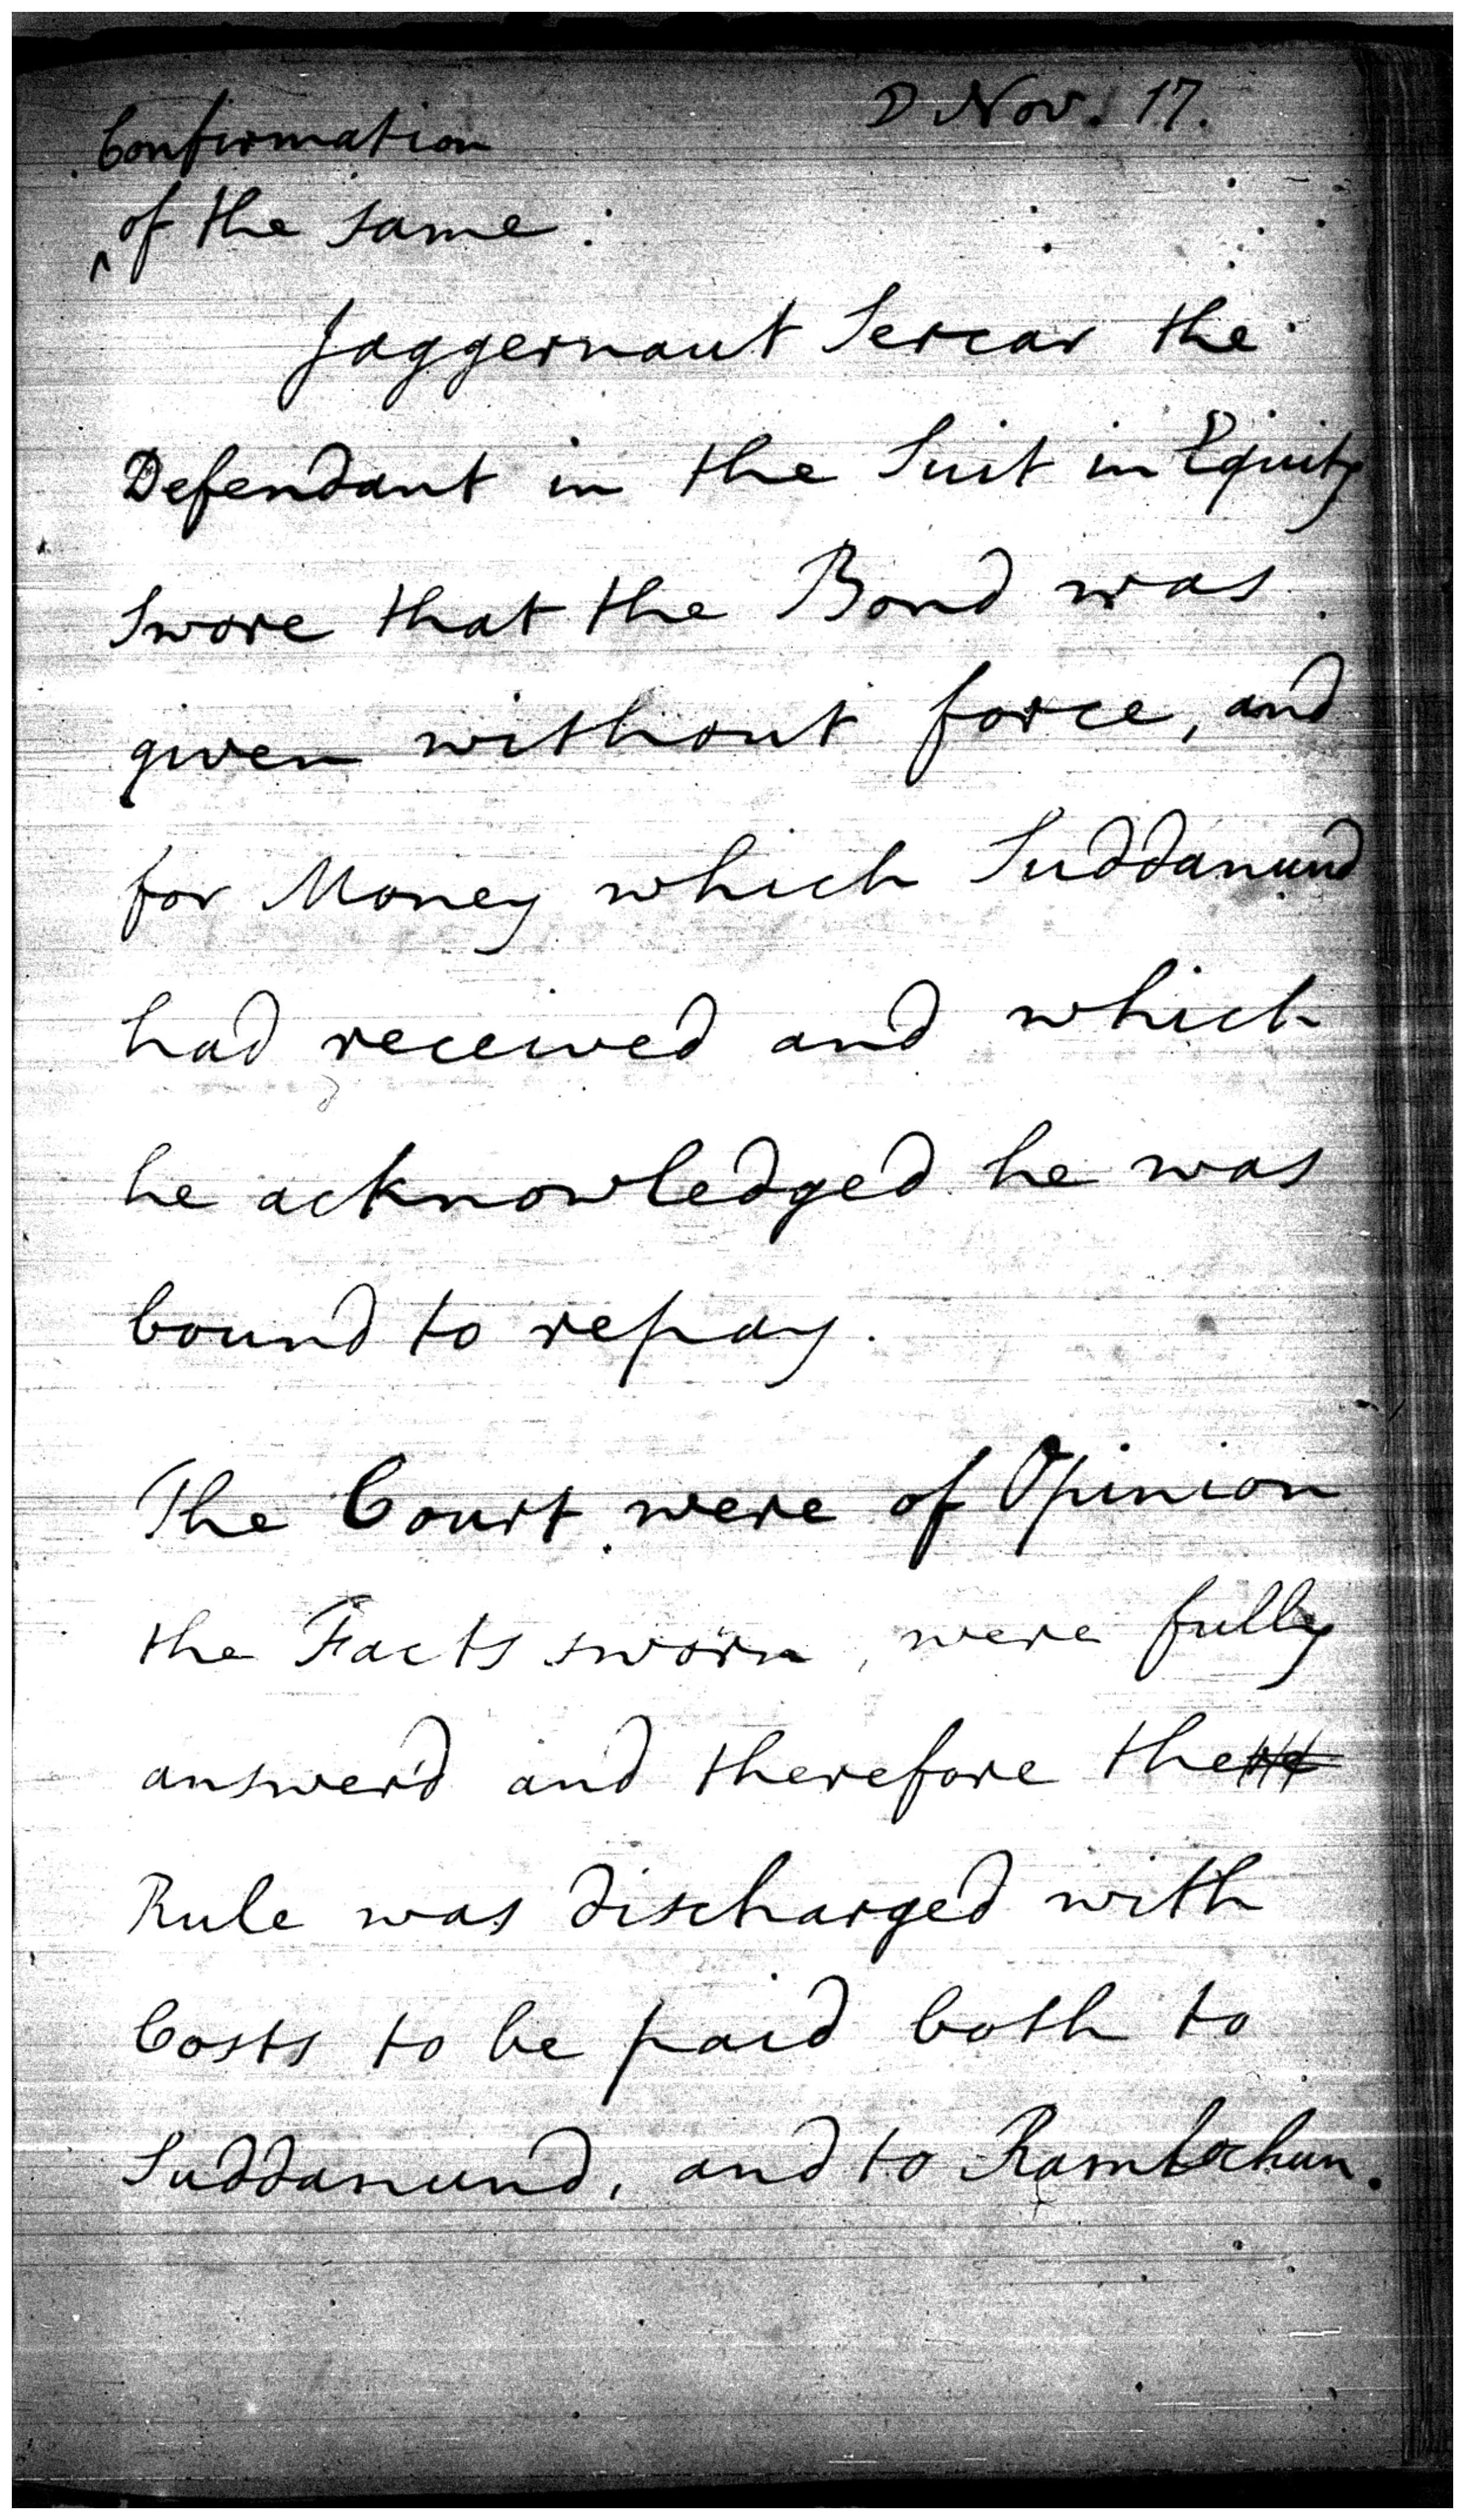 D Nov. 17.
Confirmation
^ of the same.
Jaggernaut Sercar the
Defendant in the Suit in Equity
Swore that the Bond was
given without force, and
for Money which Suddanund
had received and which
he acknowledged he was
bound to repay.
The Court were of Opinion
the Facts sworn, were fully
answer'd and therefore the
Rule was discharged with
Costs to be paid both to
Suddanund, and to Ramlochun.